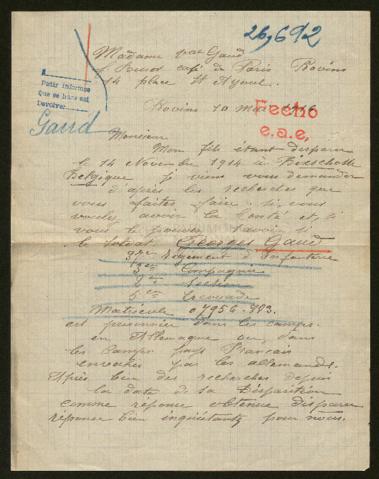 26,692
Madame Gaud
café de Paris Provins
14 place St Ayoul
Petit Informe
Que se hizo est
Devolver
Gaud
Provins 10 Mai
Fecho
e.a.e.
Monsieur
Mon fils étant disparu
le 14 Novembre 1914 à Bixschotte
Belgique je viens vous demander
d'après les recherches que
vous faites faire si vous
voulez avoir la bonté et si
vous le pouvez savoir si
le soldat Georges Gaud
Régiment d'Infanterie
Compagnie
Section
5me Escouade
Matricule 07956
est prisonnier dans les camps
en Allemagne ou dans
les camps pays Français
envahis par les allemands.
Après bien des recherches depuis
la date de sa Disparition
comme réponse obtenue disparu
réponse bien inquiétante pour nous.